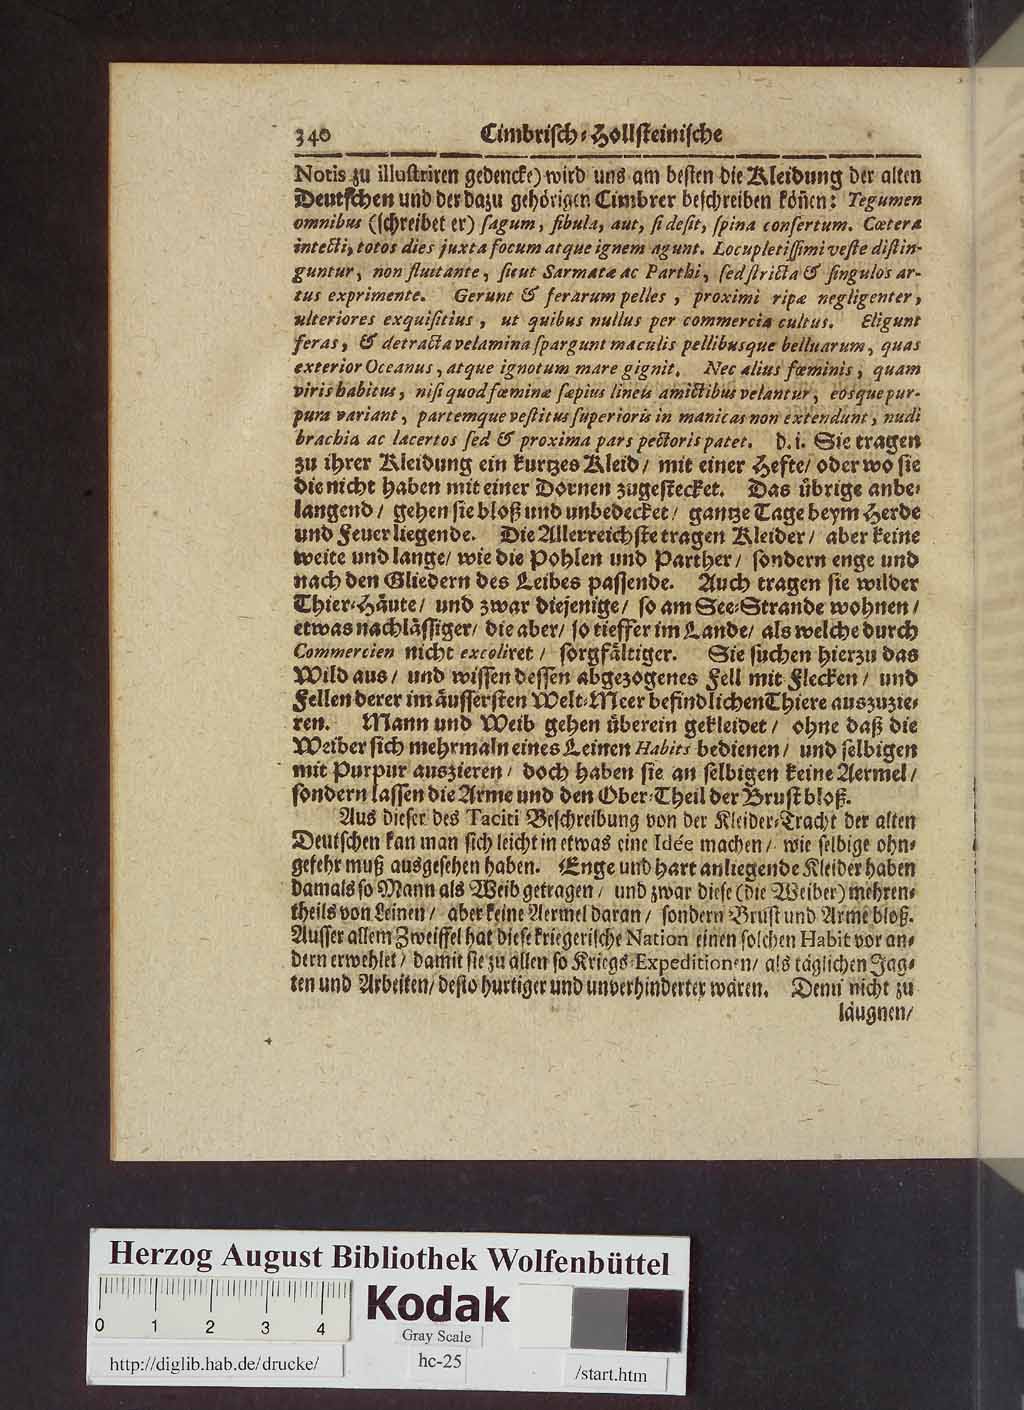 340 Cimbrisch-Hollsteinische
Notis zu illustriren gedencke) wird uns am besten die Kleidung der alten
Deutschen und der dazu gehörigen Cimbrer beschreiben kön̄en: Tegumen
omnibus (schreibet er) sagum, fibula, aut, si desit, spina consertum. Cætera
intecti, totos dies juxta focum atque ignem agunt. Locupletissimi veste distin-
guntur, non fluitante, sicut Sarmatæ ac Parthi, sed stricta & singulos ar-
tus exprimente. Gerunt & ferarum pelles, proximi ripæ negligenter,
ulteriores exquisitius, ut quibus nullus per commercia cultus. Eligunt
feras, & detracta velamina spargunt maculis pellibusque belluarum, quas
exterior Oceanus, atque ignotum mare gignit. Nec alius fœminis, quam
viris habitus, nisi quod fœminæ sæpius lineis amictibus velantur, eosque pur-
pura variant, partemque vestitus superioris in manicas non extendunt, nudi
brachia ac lacertos sed & proxima pars pectoris patet. d. i. Sie tragen
zu ihrer Kleidung ein kurtzes Kleid/ mit einer Hefte/ oder wo sie
die nicht haben mit einer Dornen zugestecket. Das übrige anbe-
langend/ gehen sie bloß und unbedecket/ gantze Tage beym Herde
und Feuer liegende. Die Allerreichste tragen Kleider/ aber keine
weite und lange/ wie die Pohlen und Parther/ sondern enge und
nach den Gliedern des Leibes passende. Auch tragen sie wilder
Thier-Häute/ und zwar diejenige/ so am See-Strande wohnen/
etwas nachlässiger/ die aber/ so tieffer im Lande/ als welche durch
Commercien nicht excoliret/ sorgfältiger. Sie suchen hierzu das
Wild aus/ und wissen dessen abgezogenes Fell mit Flecken/ und
Fellen derer im äussersten Welt-Meer befindlichen Thiere auszuzie-
ren. Mann und Weib gehen überein gekleidet/ ohne daß die
Weiber sich mehrmaln eines Leinen Habits bedienen/ und selbigen
mit Purpur auszieren/ doch haben sie an selbigen keine Aermel/
sondern lassen die Arme und den Ober-Theil der Brust bloß.
Aus dieser des Taciti Beschreibung von der Kleider-Tracht der alten
Deutschen kan man sich leicht in etwas eine Idée machen/ wie selbige ohn-
gefehr muß ausgesehen haben. Enge und hart anliegende Kleider haben
damals so Mann als Weib getragen/ und zwar diese (die Weiber) mehren-
theils von Leinen/ aber keine Aermel daran/ sondern Brust und Arme bloß.
Ausser allem Zweiffel hat diese kriegerische Nation einen solchen Habit vor an-
dern erwehlet/ damit sie zu allen so Kriegs-Expeditionen/ als täglichen Jag-
ten und Arbeiten/ desto hurtiger und unverhinderter wären. Denn nicht zu
läugnen/
Herzog August Bibliothek Wolfenbüttel
0 1 2 3 4
Kodak
Gray Scale
http://diglib.hab.de/drucke/
hc-25
/start.htm